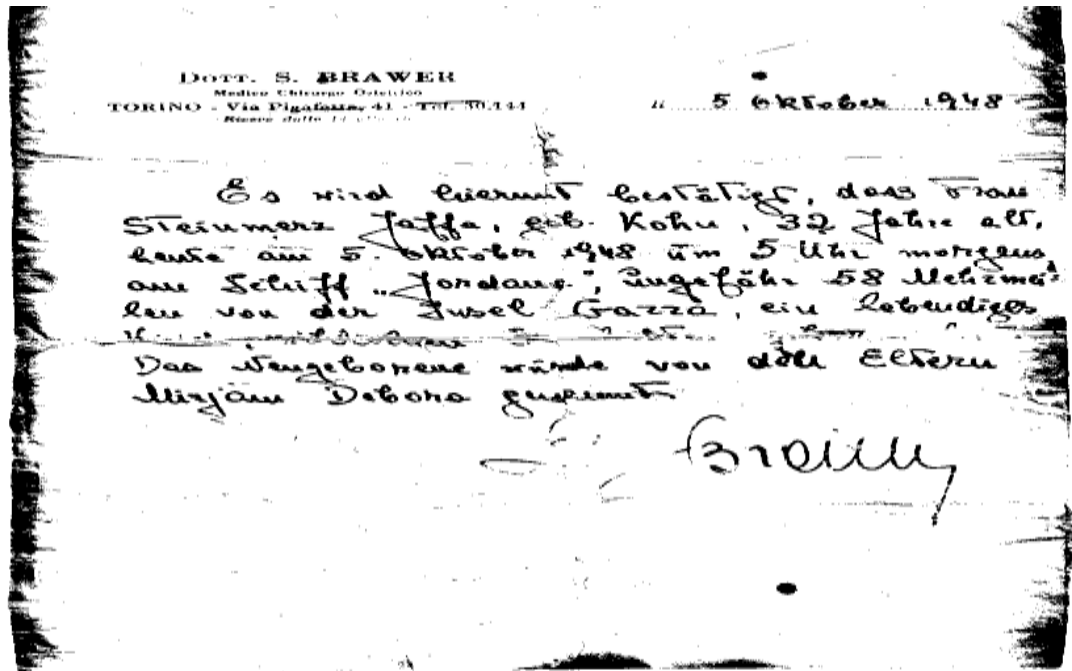 DOTT. S. BRAWER
Medico Chirurgo Ostetrico
TORINO - Via Pigafetta, 41 - Tel. 30.444
Riceve dalle
li 5 Oktober 1948
Es wird hiermit bestätigt, dass Frau
Steinmerz Jaffa, geb. Kohn, 32 Jahre alt,
heute am 5. Oktober 1948 um 5 Uhr morgens,
am Schiff „Jordano", ungefähr 58 Mehrmei-
len von der Insel Gazza, ein lebendiges
Das Neugeborene würde von den Eltern
Mirjam Debora genannt